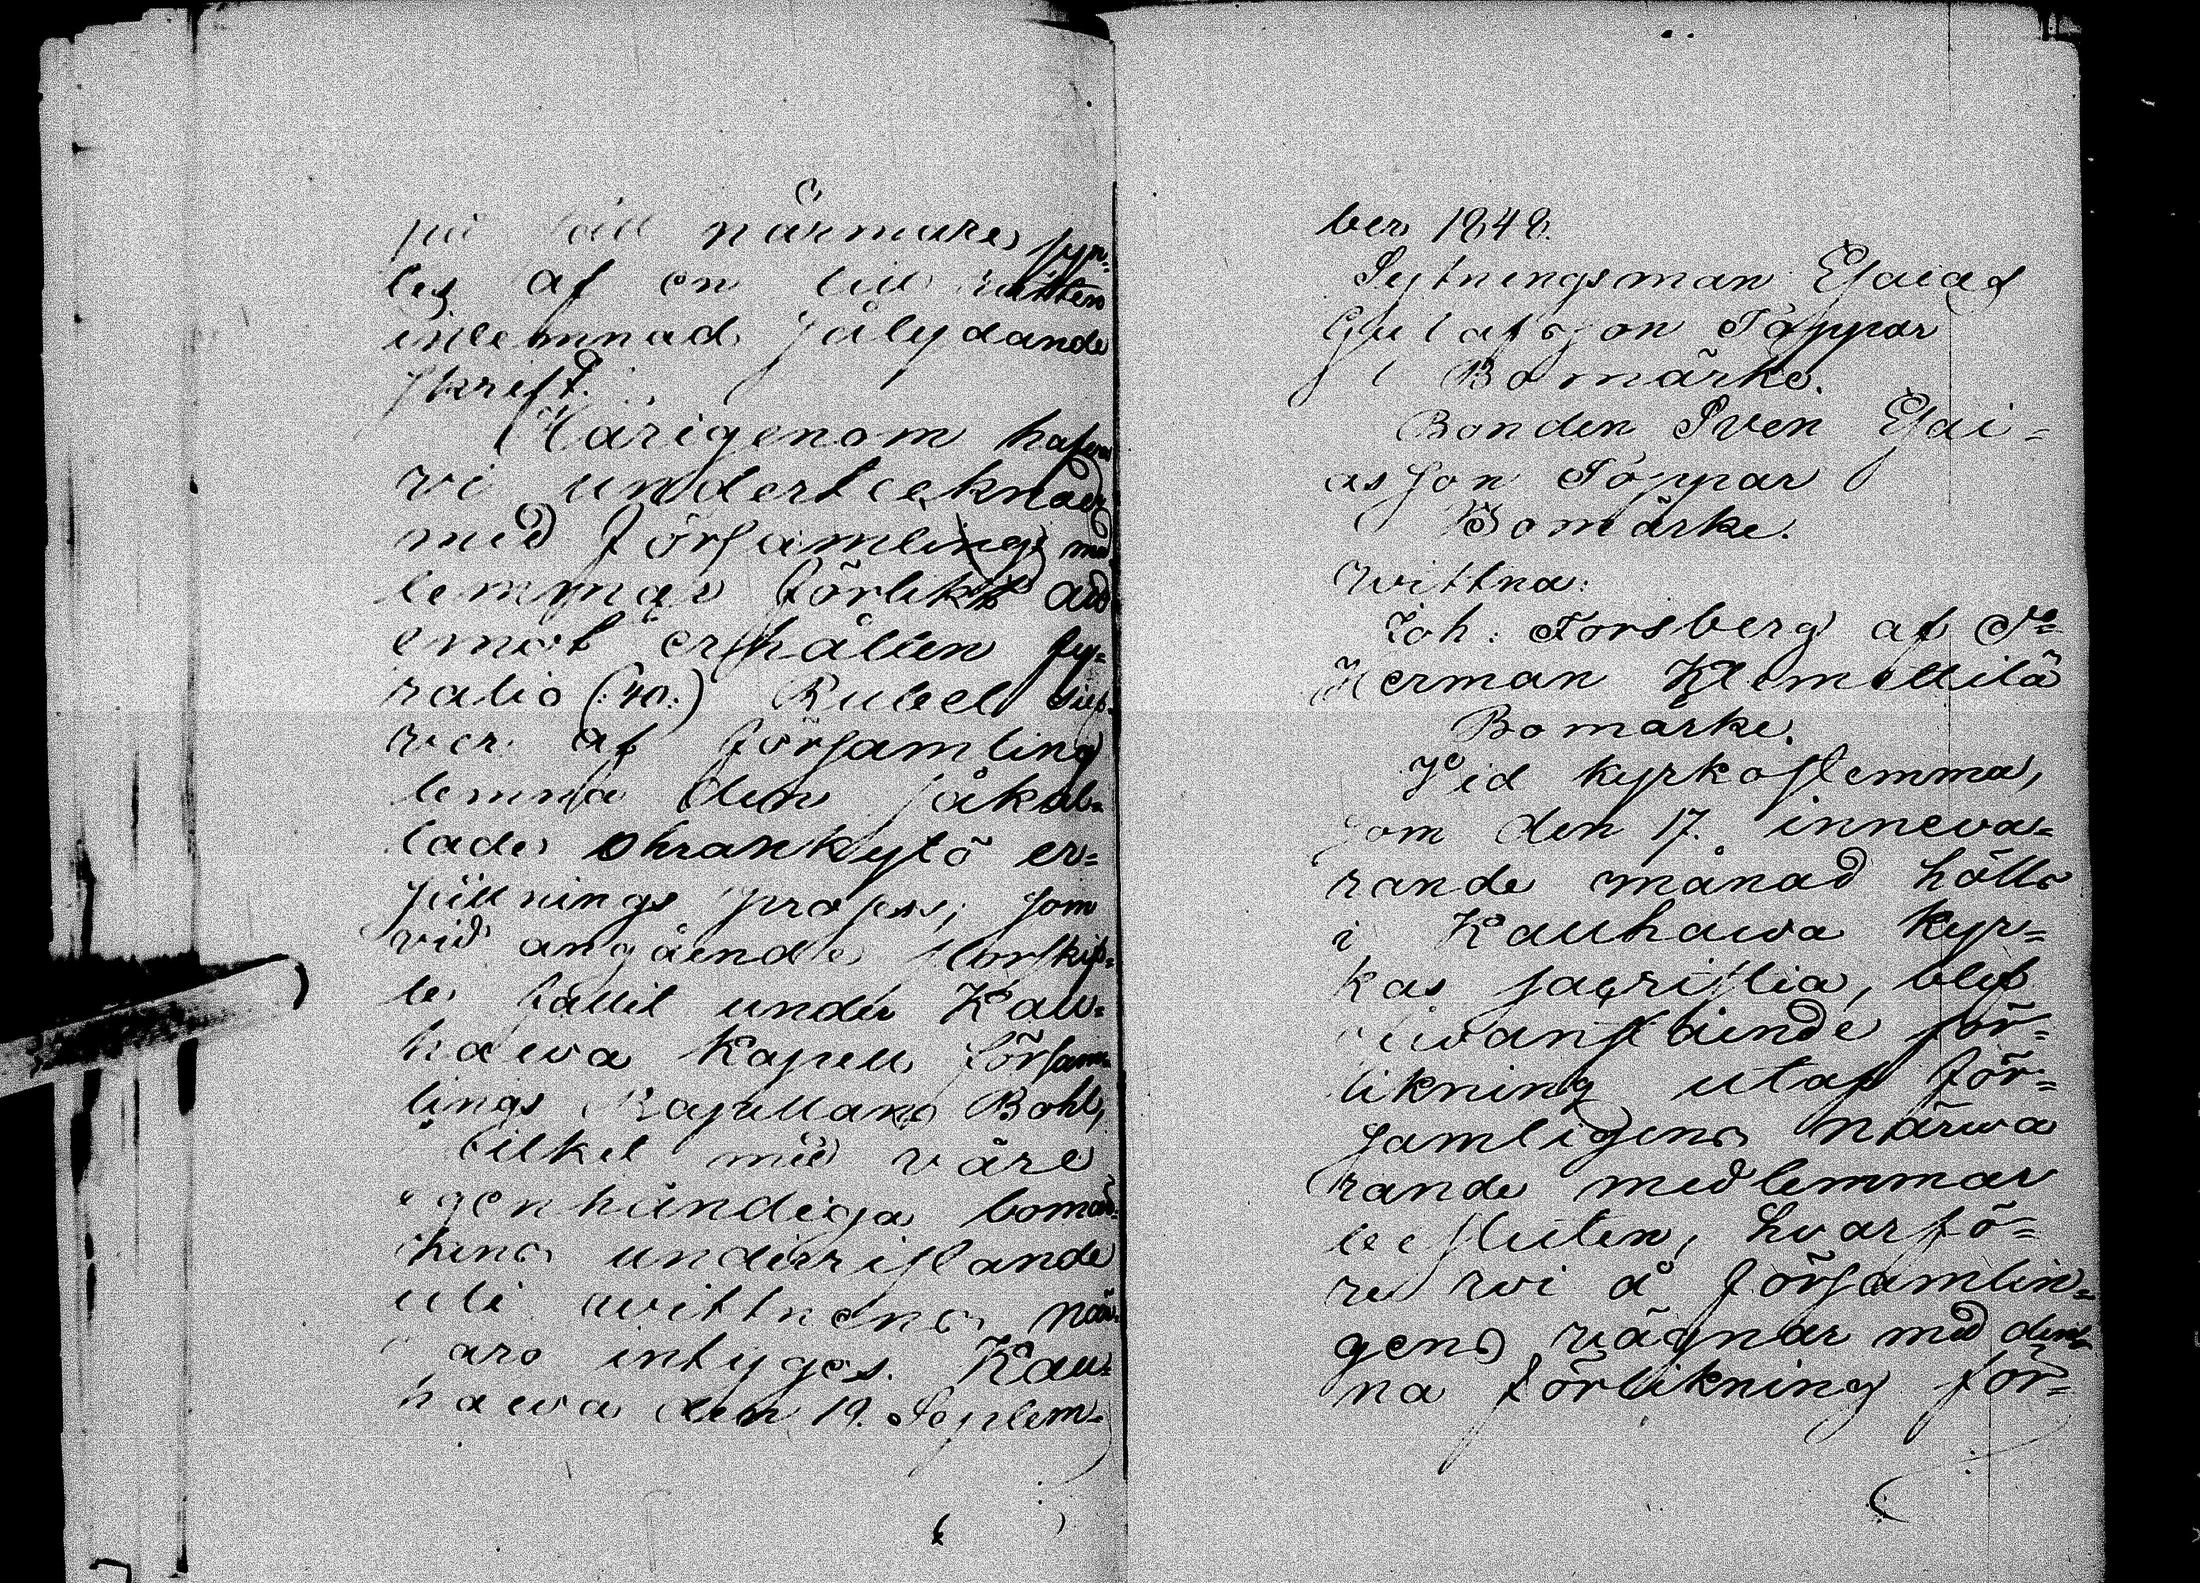 på sätt närmare syn-
les af en till rätten
inlemnad sålydande
skrift.
Härigenom hafva
vi undertecknade
med Församlings med
lemmar förlikt oss
emot erhållen fy-
ratio (:40:) Rubel silf-
wer af församling
lemna den såkal-
lade Ohrankytö er-
sättnings process, som
vid angående Storskif-
te fallit under Kau-
hawa Kapell församm-
lings Kapellans Bohl,
vilket med våre
egenhändiga bomär-
kens underristande
uti wittnens när-
varo intyges. Kau-
hawa den 19. Septem-
ber 1848.
Sytningsman Esaias
Gustafsson Töppar
Bomärke.
Bonden Sven Esai-
asson Töppar
Bomärke.
Wittna:
Joh: Forsberg af S:
Herman Klemettilä
Bomärke.
Vid kyrkostemma,
som den 17. inneva-
rande månad hölls
i Kauhawa kyr-
kas sacristia, blef
ofwanstående för-
likning utaf För-
samligens närwa
rande medlemmar
besluten, hvarfö-
re wi å Församlin-
gens vägnar med den-
na förlikning för-